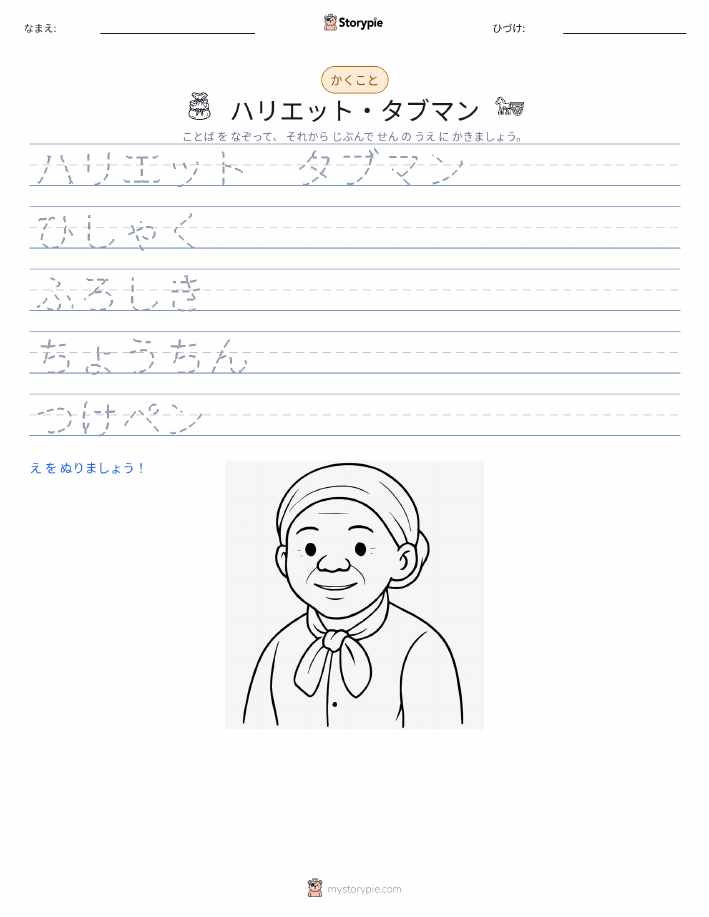 なまえ:
Storypie
ひづけ:
かくこと
ハリエット・タブマン
ことば を なぞって、 それから じぶんで せん の うえ に かきましょう。
ハリエット タブマン
ひしゃく
ふろしき
ちょうちん
つけペン
え を ぬりましょう！
mystorypie.com